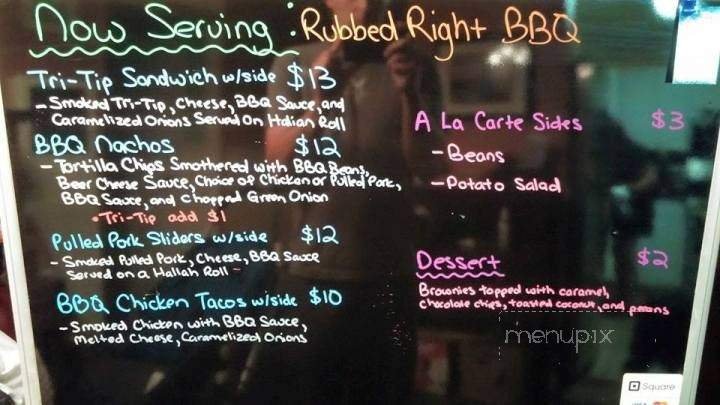 Now Serving: Rubbed Right BBQ
Tri-Tip Sandwich w/side $13
- Smoked Tri-Tip, Cheese, BBQ Sauce, and
Caramelized Onions Served On Italian Roll
BBQ Nachos $12
- Tortilla Chips Smothered with BBQ Beans,
Beer Cheese Sauce, Choice of Chicken or Pulled Pork,
BBQ Sauce, and chopped Green Onion
• Tri-Tip add $1
Pulled Pork Sliders w/side $12
- Smoked Pulled Pork, Cheese, BBQ Sauce
Served on a Hallah Roll
BBQ Chicken Tacos w/side $10
- Smoked Chicken with BBQ Sauce,
Melted Cheese, Caramelized Onions
A La Carte Sides $3
- Beans
- Potato Salad
Dessert $2
Brownies topped with caramel,
chocolate chips, toasted coconut, and pecans
menupix
Square